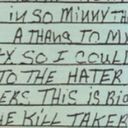 IN SO MINNY TH
A THANG TO MY
SO I COUL
TO THE HATER
ERS THIS IS BIG
HE KILL TAKER